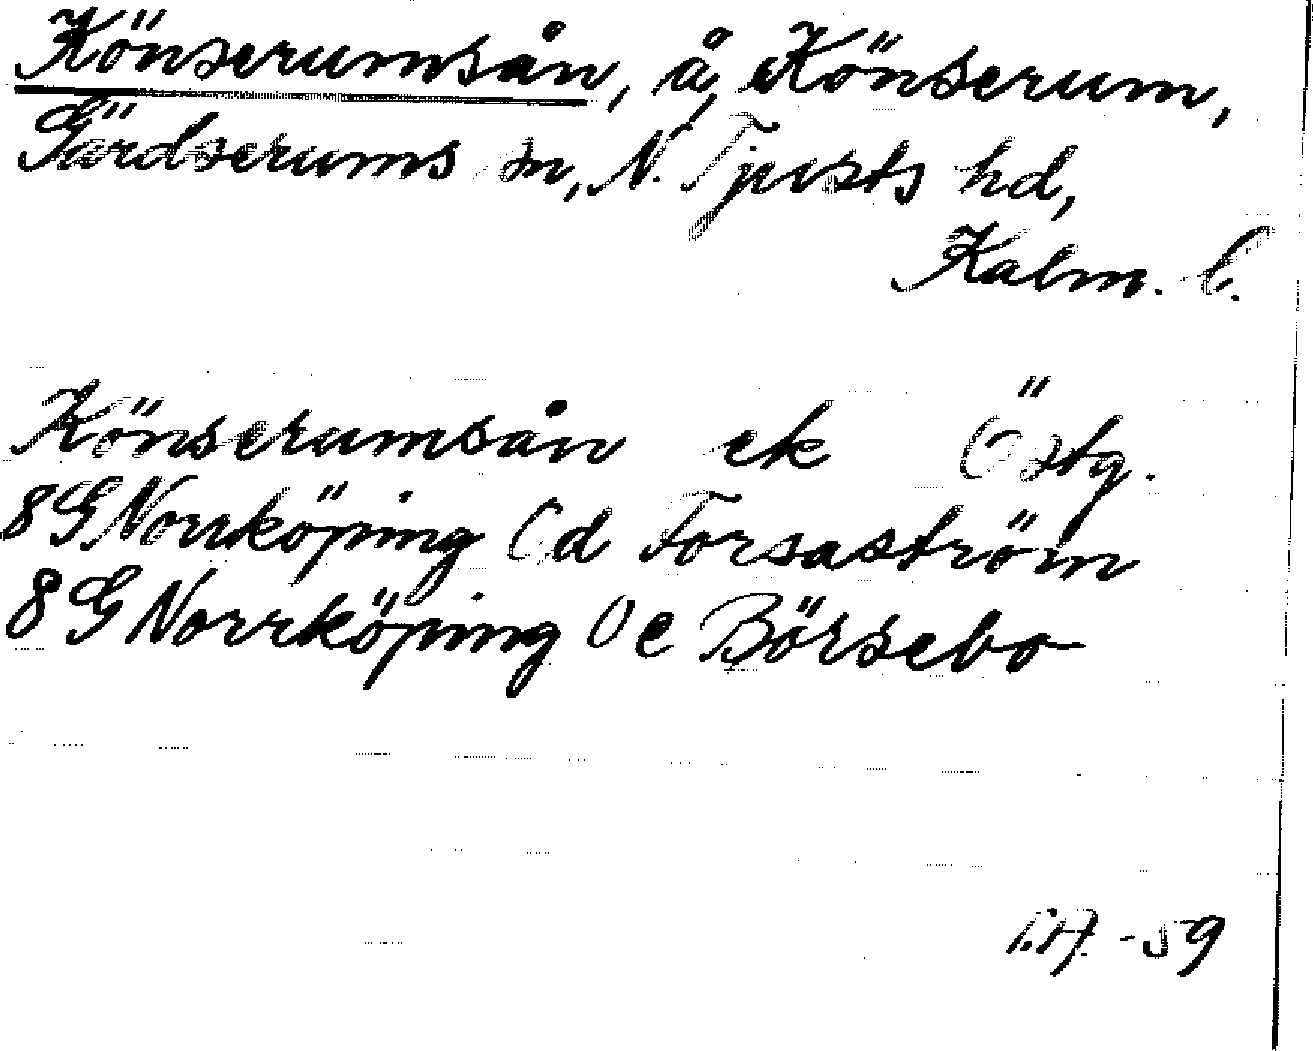 Könserumsån, å, Könserum,
Gärdserums sn, N. Tjusts hd,
Kalm. l.
Könserumsån ek Östg.
8G Norrköping 0d Forsaström
8G Norrköping 0e Börsebo
-59